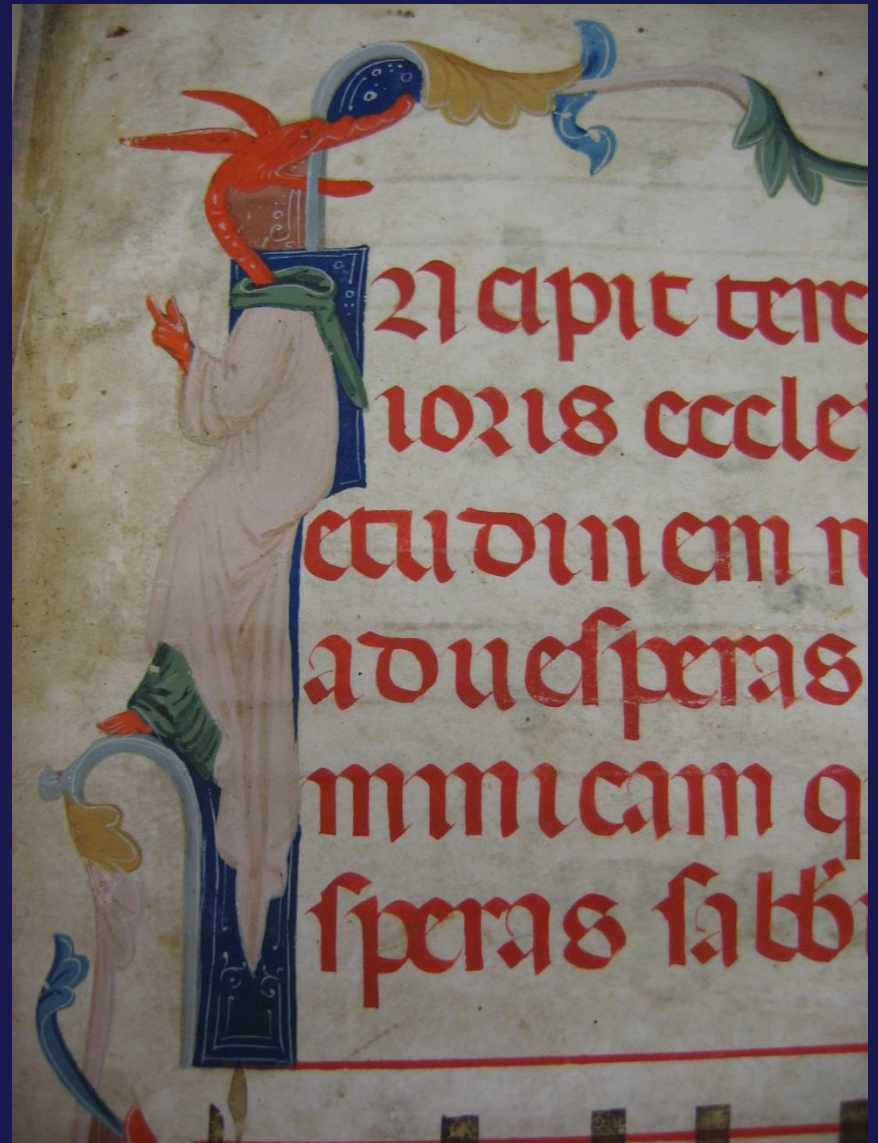 INcipit terc
ioris eccle
etudinem n
ad uesperas
minicam q
speras sabb